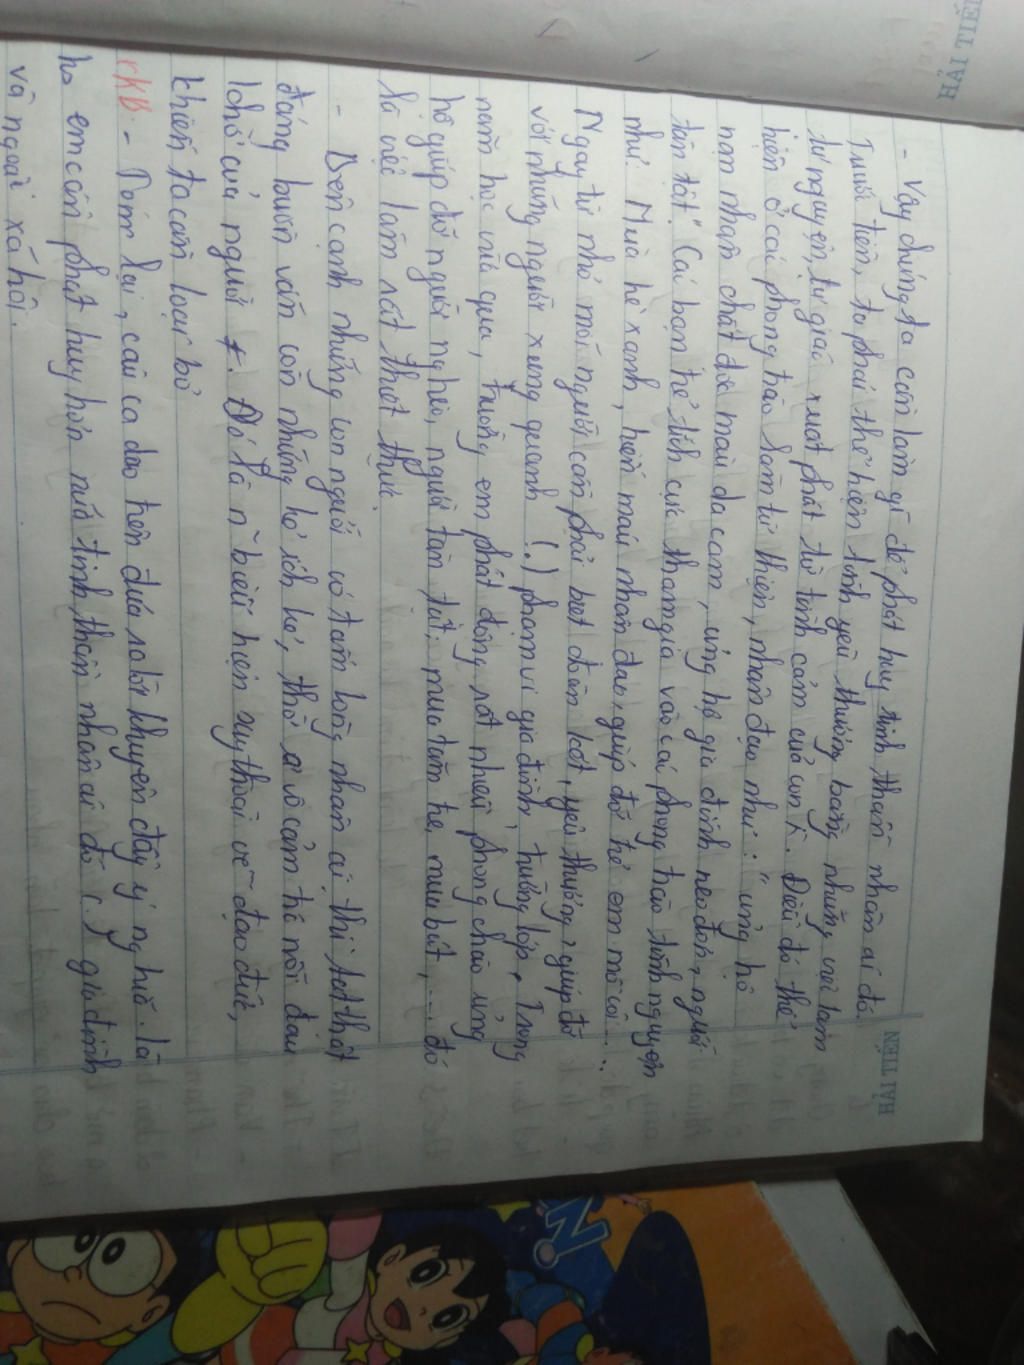 HẢI TIẾN
HẢI TIẾN
- Vậy chúng ta cần làm gì để phát huy tinh thần nhân ái đó.
Trước tiên, ta phải thể hiện tình yêu thương bằng những việc làm
tự nguyện, tự giác xuất phát từ tình cảm của con ng. Điều đó thể
hiện ở các phong trào làm từ thiện, nhân đạo như: "ủng hộ
nạn nhân chất độc màu da cam, ủng hộ gia đình neo đơn, người
tàn tật" Các bạn trẻ tích cực tham gia vào các phong trào tình nguyện
như: Mùa hè xanh, hiến máu nhân đạo, giúp đỡ trẻ em mồ côi ....
Ngay từ nhỏ mỗi người cần phải biết đoàn kết, yêu thương, giúp đỡ
với những người xung quanh (.) phạm vi gia đình, trường lớp. Trong
năm học vừa qua, trường em phát động rất nhiều phong chào ủng
hộ giúp đỡ người nghèo, người tàn tật, mua tăm tre, mua bút, .... đó
là việc làm rất thiết thực.
- Bên cạnh những con người có tấm lòng nhân ái thì thật
đáng buồn vẫn còn những kẻ ích kỉ, thờ ơ vô cảm trc nỗi đau
khổ của người #. Đó là n~ biểu hiện suy thoái về đạo đức,
khiến ta cần loại bỏ
rKB. - Tóm lại, câu ca dao trên đưa ra lời khuyên đầy ý nghĩa. Là
hs em cần phát huy hơn nữa tinh thần nhân ái đó (.) gia đình
và ngoài xã hội.